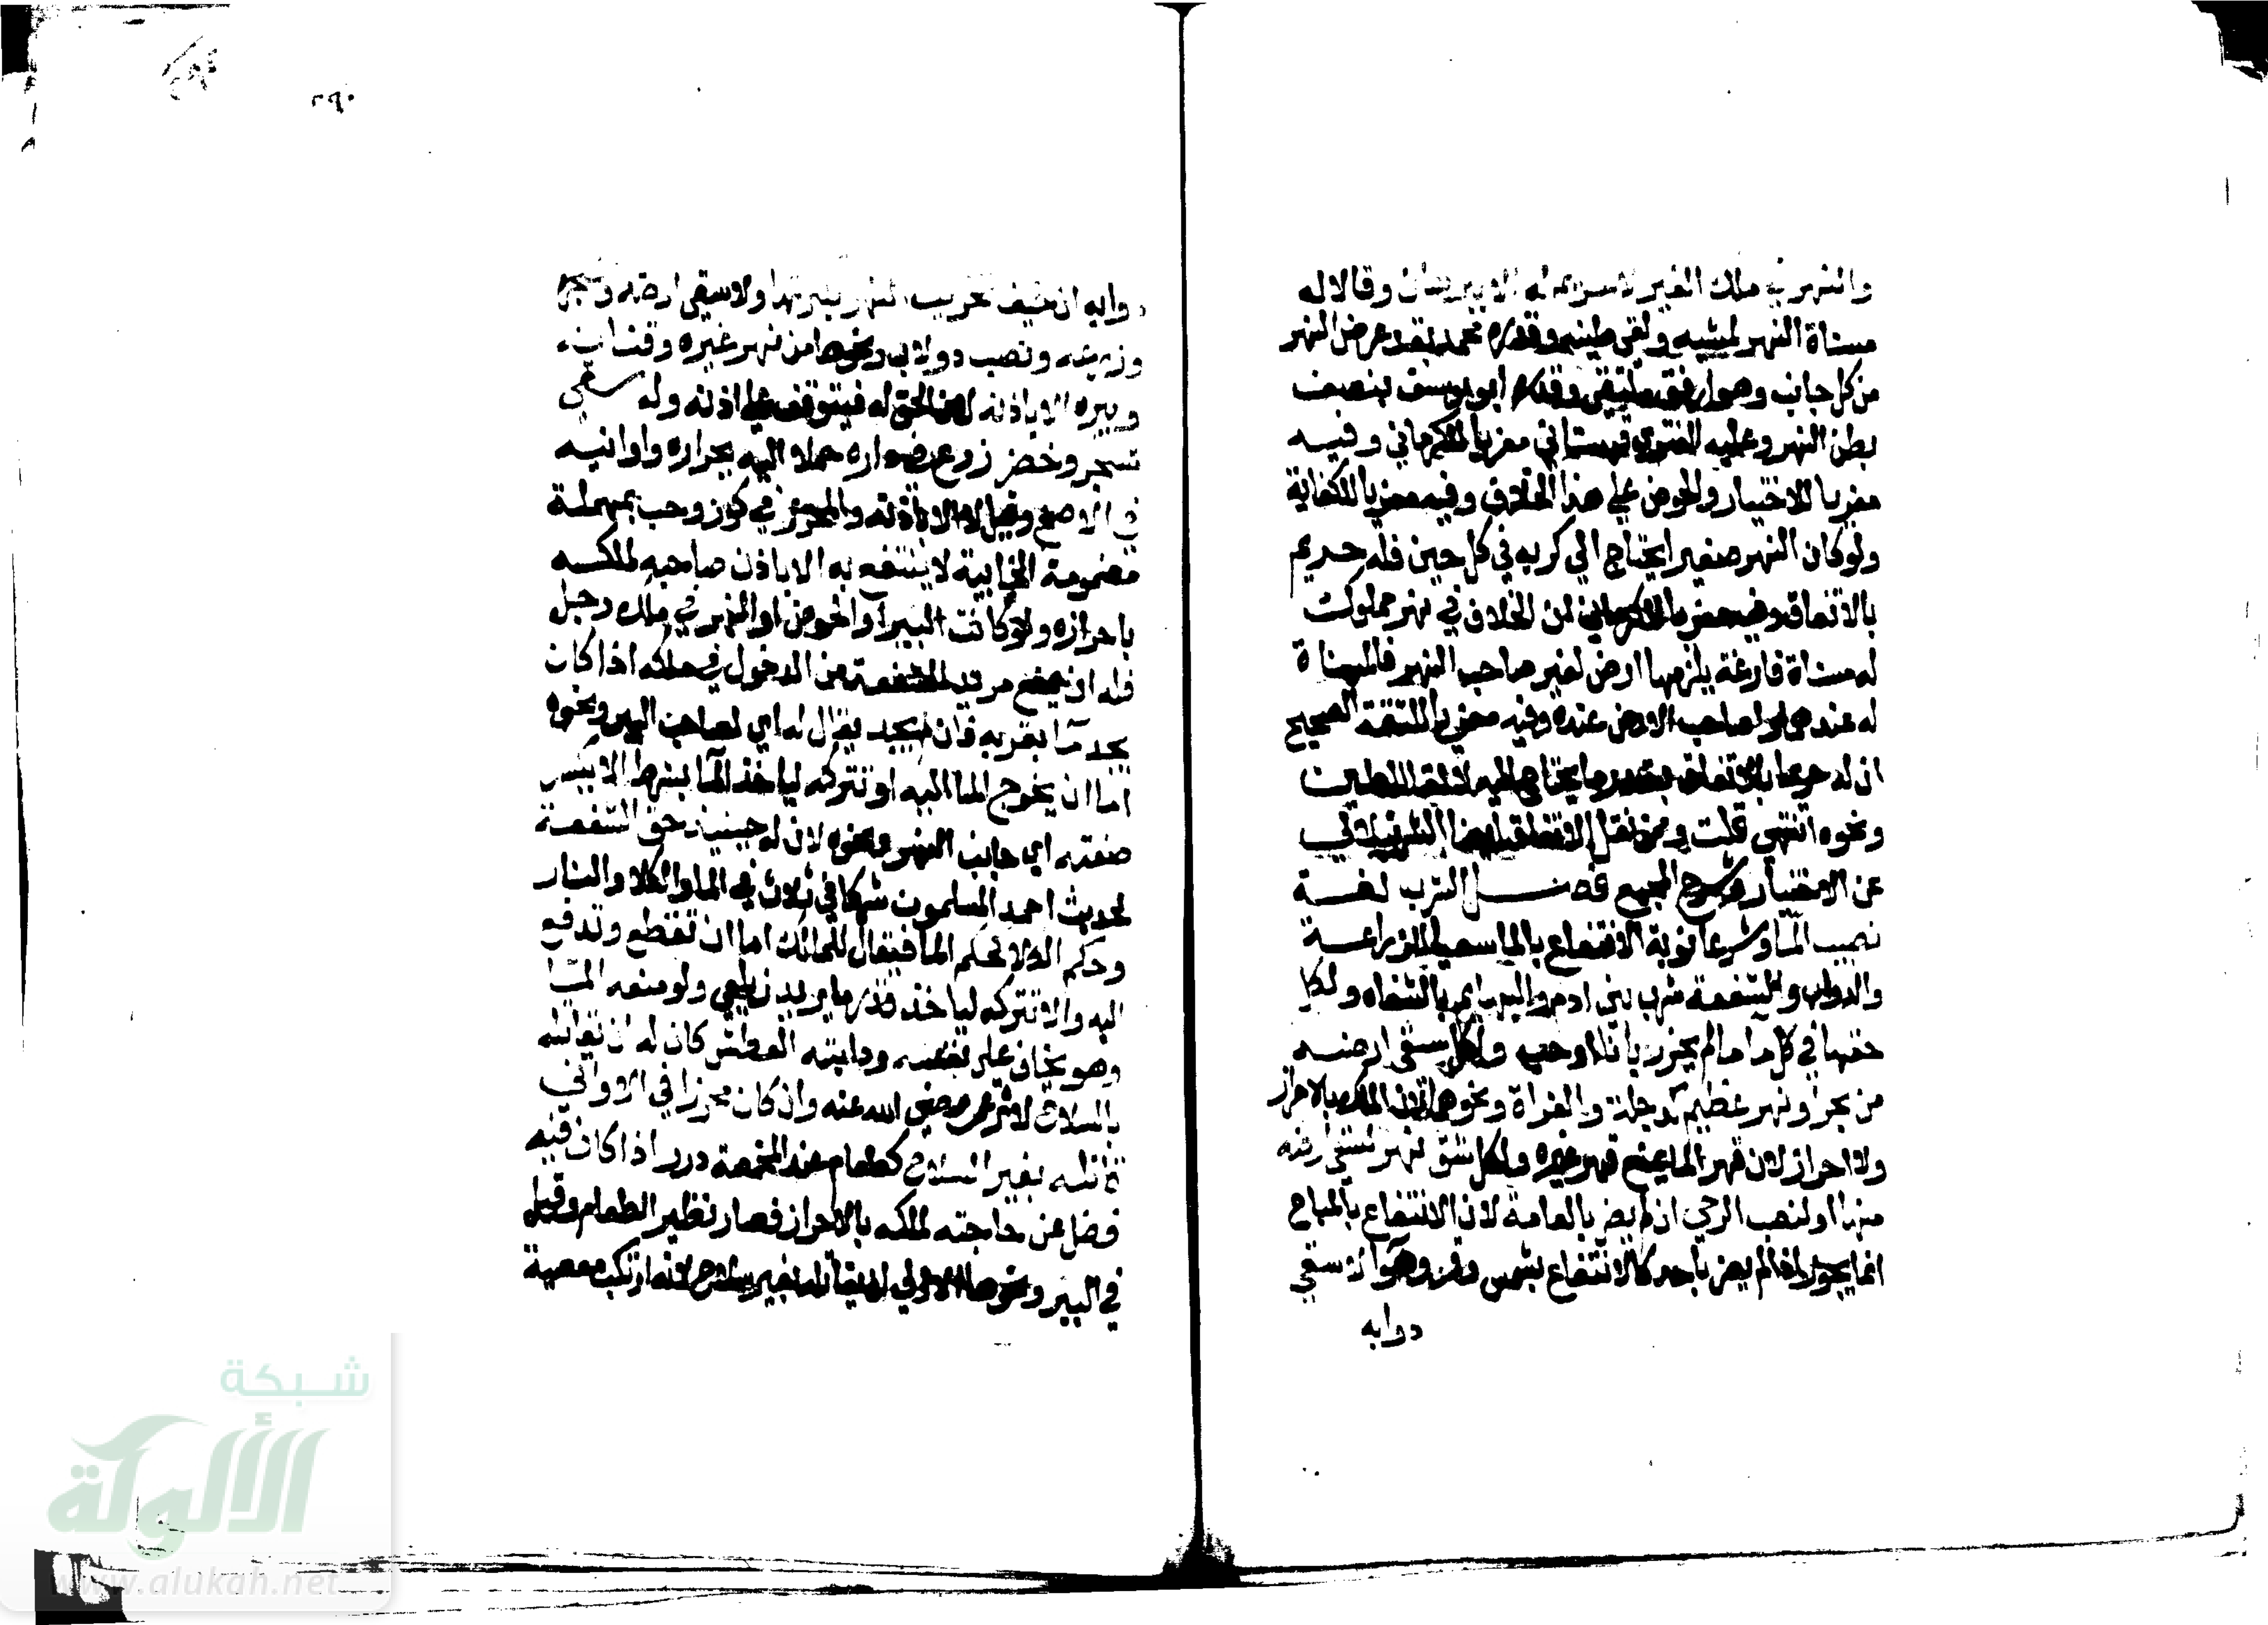 والنهر في ملك الغير لا حريم له الا ببرهان وقالا له
مسناة النهر لمشيه ولقي طينه وقدره محمد بقدر عرض النهر
من كل جانب وهو ارفق ملتقى وقدره ابو يوسف بنصف
بطن النهر وعليه الفتوى قهستاني معزيا للكرماني وفيه
معزيا للاختيار والحوض على هذا الخلاف وفيه معزيا للكفاية
ولو كان النهر صغيرا يحتاج الي كريه في كل حين فله حريم
بالاتفاق وفيه معزيا للكرماني ان الخلاف في نهر مملوك
له مسناة فارغة يلزمها ارض لغير صاحب النهر فالمسناة
له عندهما ولصاحب الارض عنده وفيه معزيا للتتمة الصحيح
ان له حريما بالاتفاق بقدر ما يحتاج اليه لالقا الطين
ونحوه انتهى قلت وممن نقل الاتفاق الشرنبلالي
عن الاختيار وشرح المجمع فصل الشرب لغة
نصيب الما وشرعا نوبة الانتفاع بالما سقيا للزراعة
والدواب والشفعة شرب بني ادم والبهايم بالشفاه ولكل
حقها في كل ما لم يحرز باناء او حب ولكل سقى ارضه
من بحر او نهر عظيم كدجلة والفراة ونحوهما لان الملك بالاحراز
ولا احراز لان قهر الما يمنع قهر غيره ولكل شق نهر لسقي ارضه
منها او لنصب الرحي ان لم يضر بالعامة لان الانتفاع بالمباح
انما يجوز اذا لم يضر باحد كالانتفاع بشمس وقمر وهوا لا سقي
دوابه
٢٩٠
دوابه ان خيف تخريب النهر لكثرتها ولا سقي ارضه وشجره
وزرعه ونصب دولاب ونحوها من نهر غيره وقناته
وبيره الا باذنه لان الحق له فيتوقف على اذنه وله سقي
شجر وخضر زرع في داره حملا اليه بجراره واوانيه
في الاصح وقيل لا الا باذنه والمحرز في كوز وحب بمهملة
مضمومة الخابية لا ينتفع به الا باذن صاحبه لملكه
باحرازه ولو كانت البير او الحوض او النهر في ملك رجل
فله ان يمنع مريد الشفعة من الدخول في ملكه اذا كان
يجد ما بقربه فان لم يجد يقال له اي لصاحب البير ونحوه
اما ان يخرج الما اليه او تتركه لياخذ الما بشرط الا يكسر
ضفته اي جانب النهر ونحوه لان له حينيذ حق الشفعة
لحديث احمد المسلمون شركا في ثلاث في الما والكلا والنار
وحكم الكلا كحكم الما فيقال للمالك اما ان تقطع وتدفع
اليه والا تتركه لياخذ قدر ما يريد زيلعي ولو منعه الما
وهو يخاف على نفسه ودابته العطش كان له ان يقاتله
بالسلاح لاثر عمر رضي الله عنه وان كان محرزا في الاواني
قاتله بغير السلاح كطعام عند المخمصة درر اذا كان فيه
فضل عن حاجته لملكه بالاحراز فصار نظير الطعام وقيل
في البير ونحوها الاولي ان يقاتله بغير سلاح لانه ارتكب معصية
شبكة
الألوكة
www.alukah.net